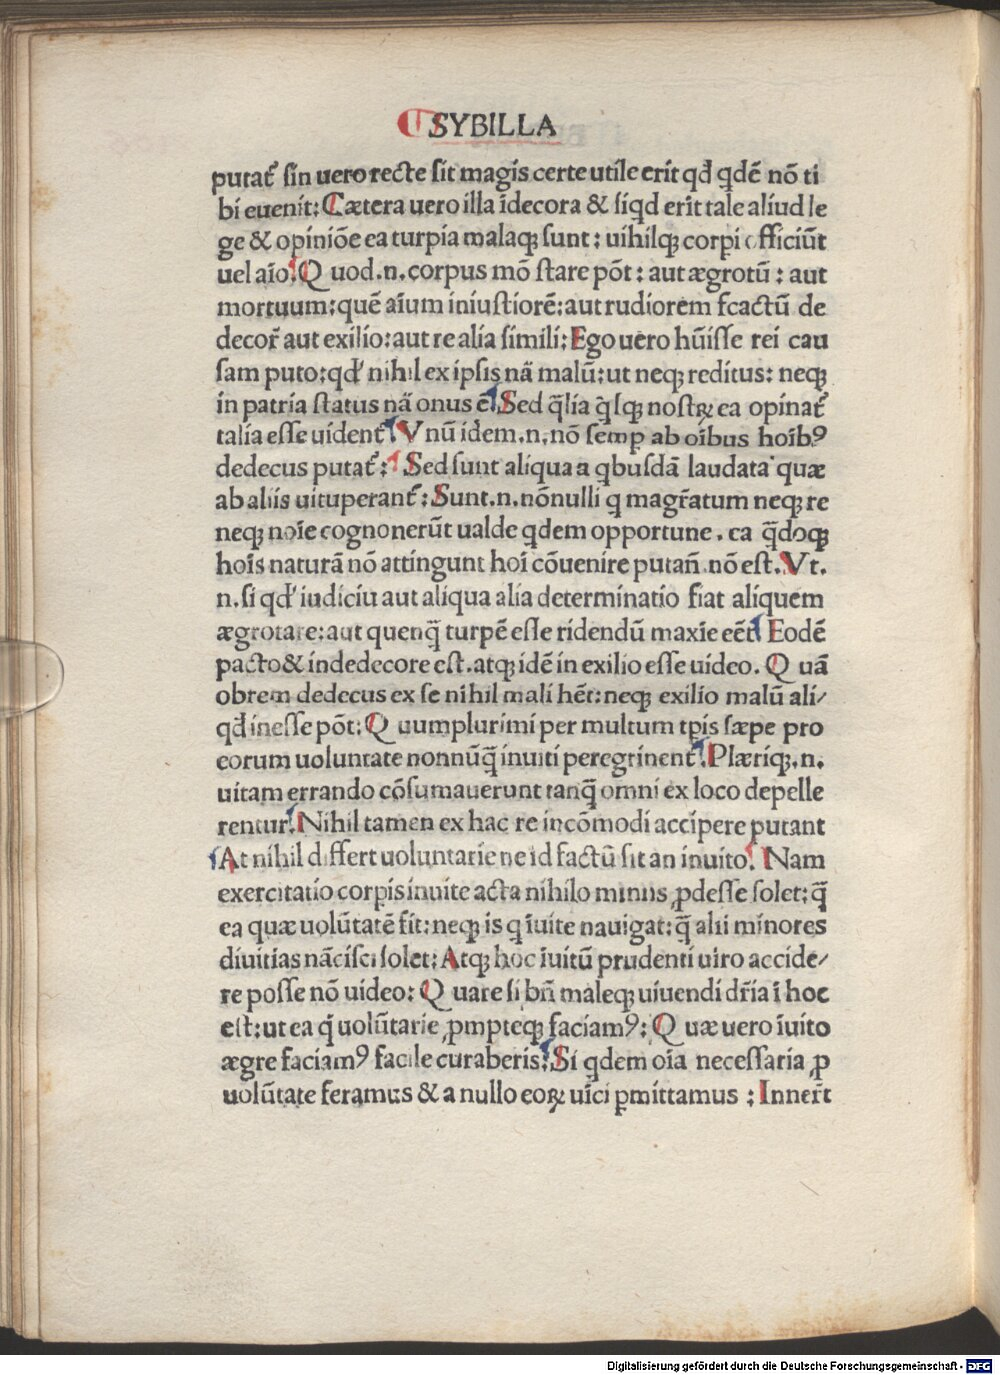 SYBILLA
putat᷒ sin uero recte sit magis certe utile erit qđ qdē nō ti
bi euenit: Cætera uero illa īdecora & siqd erit tale aliud le
ge & opiniōe ea turpia malaqꝫ sunt: uihilqꝫ corpi officiūt
uel aīo: Quod.n.corpus mō stare pōt: aut ægrotū: aut
mortuum: quē aīum iniustiorē: aut rudiorem fcactū de
decor᷒ aut exilio: aut re alia simili: Ego uero hūisse rei cau
sam puto: qđ nihil ex ipsis nā malū: ut neqꝫ reditus: neqꝫ
in patria status nā onus ē: Sed q̄lia q̊sqꝫ nostꝝ ea opinat᷒
talia esse uident᷒: Vnū idem.n.nō semꝑ ab oībus hoībꝰ
dedecus putat᷒: Sed sunt aliqua a qbusdā laudata quæ
ab aliis uituperant᷒: Sunt.n.nōnulli q magr̄atum neqꝫ re
neqꝫ noīe cognonerūt ualde qdem opportune. ea q̄doqꝫ
hoīs naturā nō attingunt hoī cōuenire putan᷒.nō est. Vt.
n.si qđ iudiciu aut aliqua alia determinatio fiat aliquem
ægrotare: aut quenq̄ turpē esse ridendū maxīe eēt: Eodē
pacto & indedecore est.atqꝫ idē in exilio esse uideo. Quā
obrem dedecus ex se nihil mali hēt: neqꝫ exilio malū ali/
qđ inesse pōt: Quumplurimi per multum tꝑis sæpe pro
eorum uoluntate nonnūq̄ inuiti peregrinent᷒: Plæriqꝫ.n.
uitam errando cōsumauerunt tanq̄ omni ex loco depelle
rentur: Nihil tamen ex hac re incōmodi accipere putant
At nihil differt uoluntarie ne id factū sit an inuito: Nam
exercitatio corꝑis inuite acta nihilo minus ꝓdesse solet: q̄
ea quæ uolūtatē fit: neqꝫ is q īuite nauigat: q̄ alii minores
diuitias nācisci solet: Atqꝫ hoc īuitū prudenti uiro accide/
re posse nō uideo: Quare si bn̄ maleqꝫ uiuendi dr̄ia ī hoc
est: ut ea q̄ uolūtarie ꝓmpteqꝫ faciamꝰ: Quæ uero īuito
ægre faciamꝰ facile curaberis: Si qdem oīa necessaria ꝓ
uolūtate feramus & a nullo eoꝝ uīci ꝑmittamus: Inner̄t
Digitalisierung gefördert durch die Deutsche Forschungsgemeinschaft - DFG